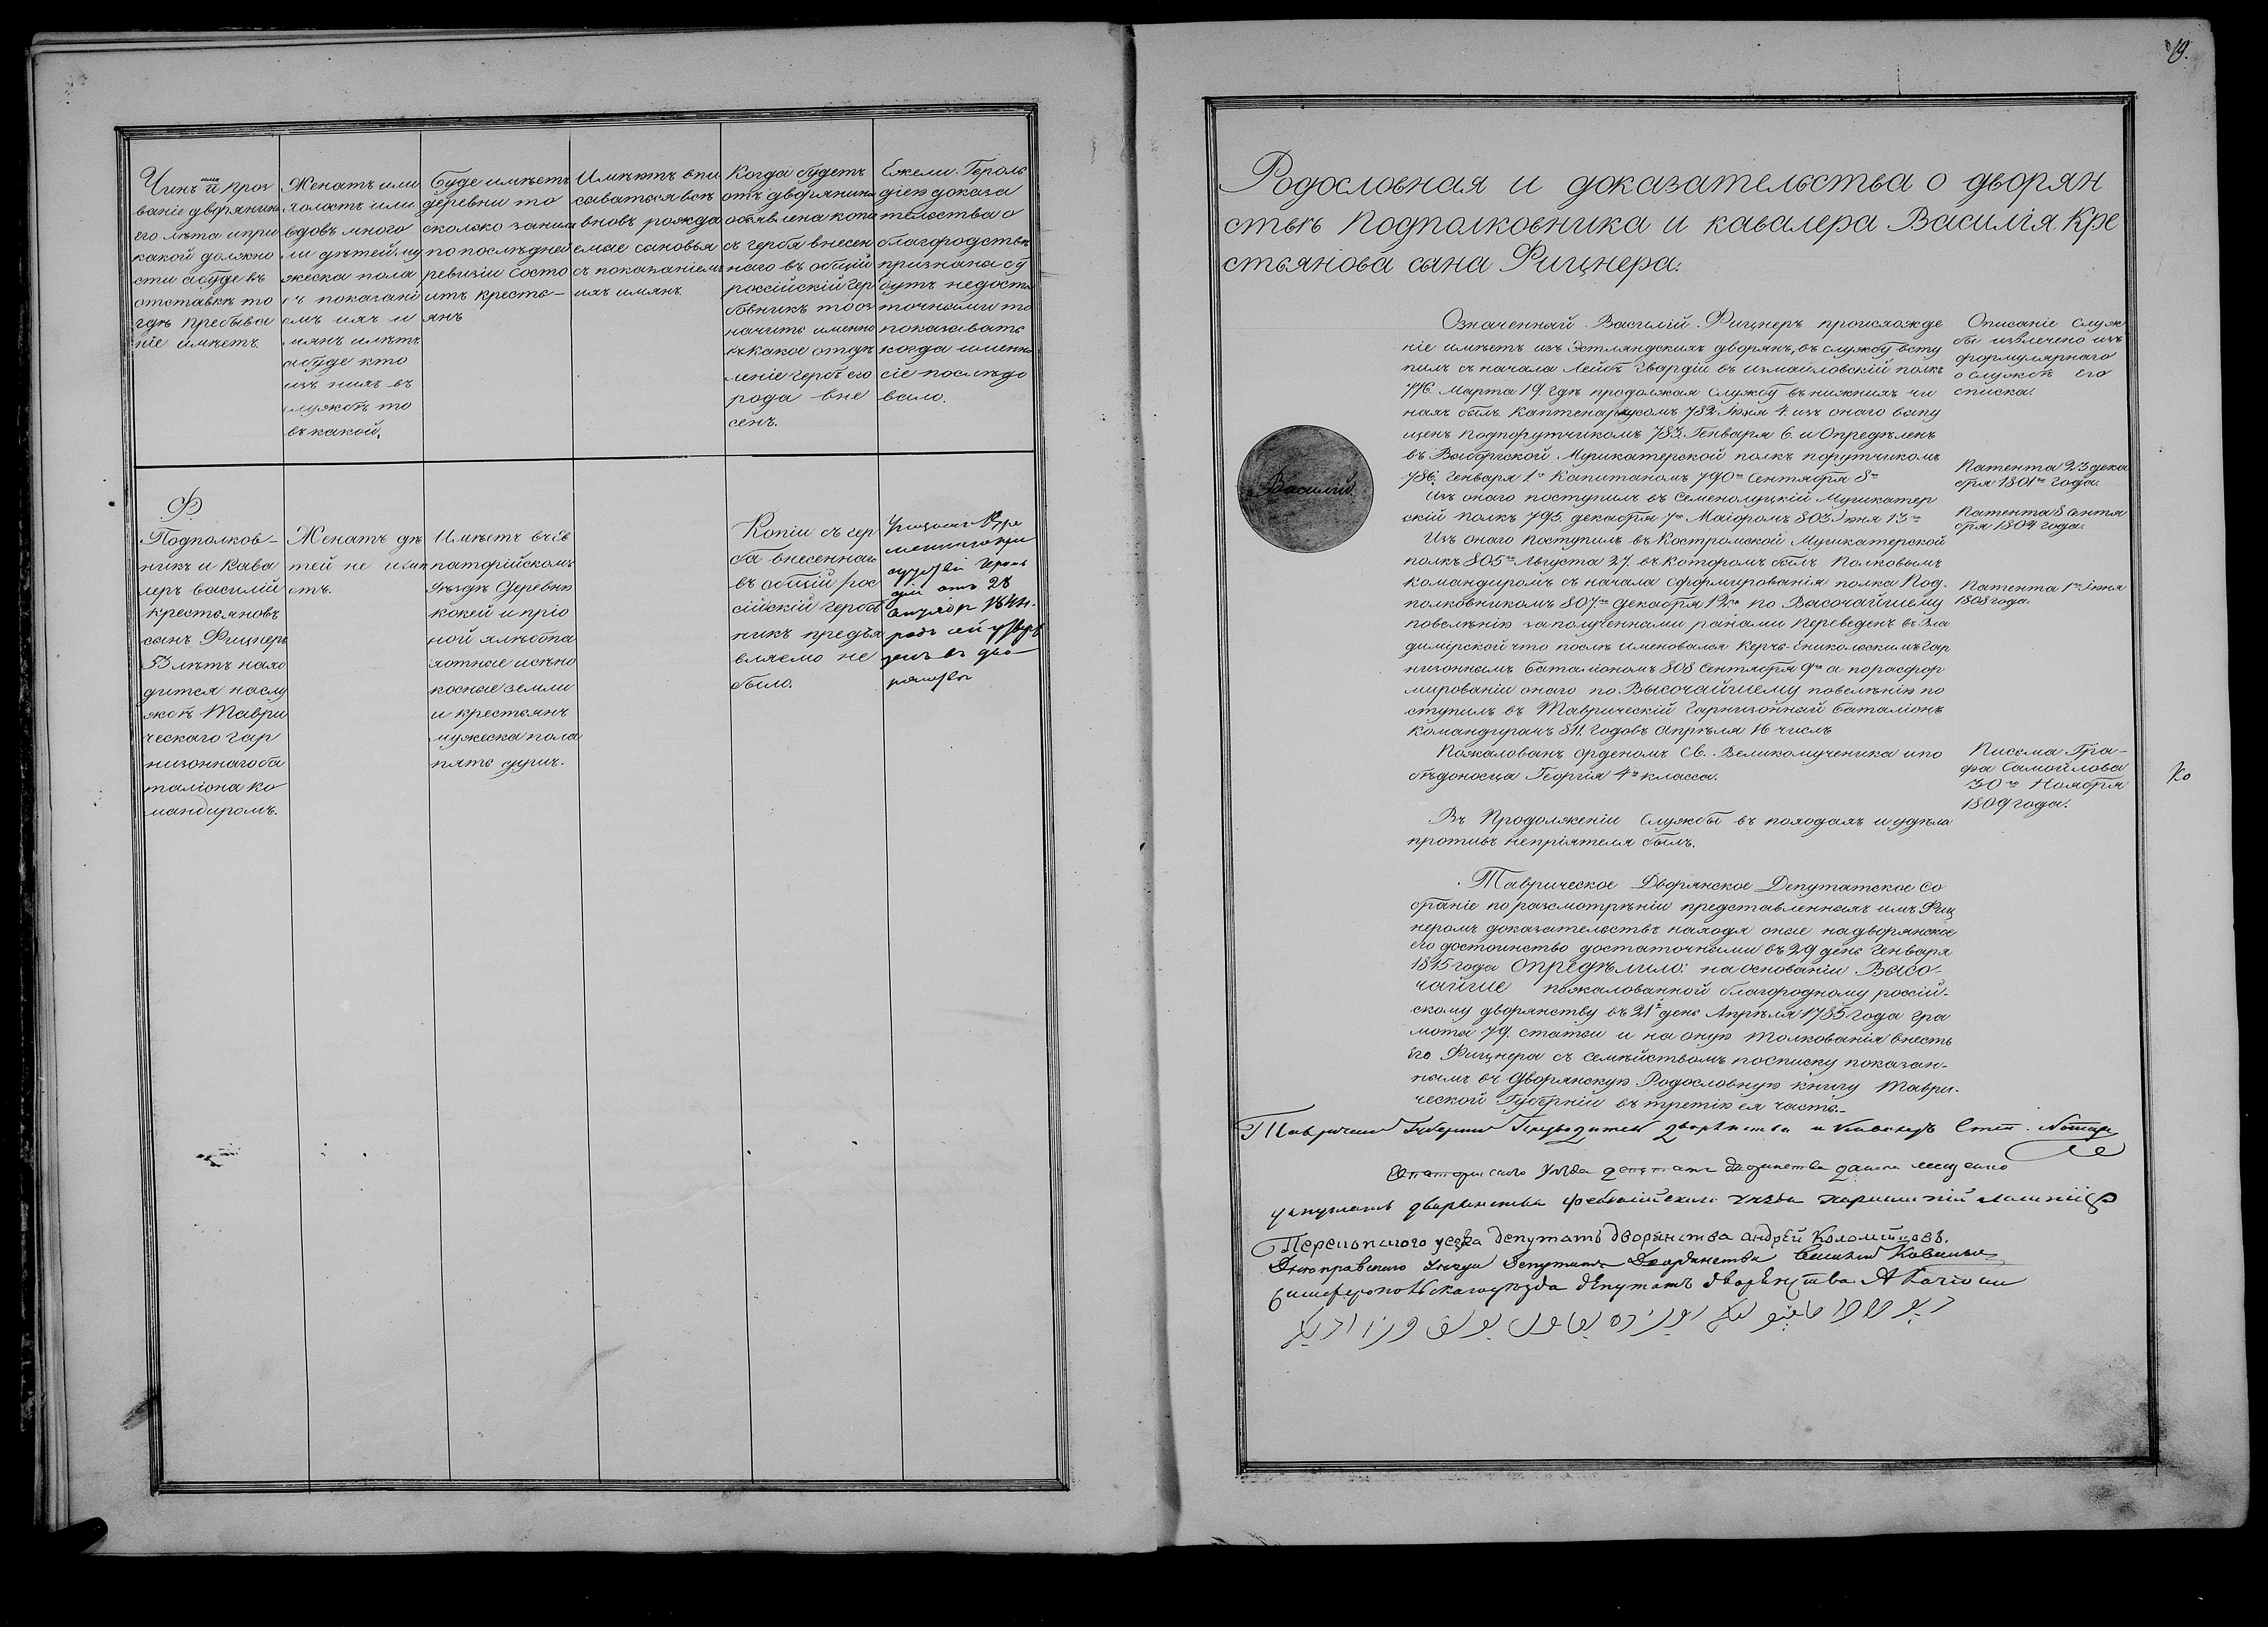 Чинъ или проз
ваніе дворянина
его лѣта и при
какой должно
сти абуде въ
отставкѣ то
гдѣ пребыва
ніе имѣетъ.
Женатъ или
холостъ или
вдовъ много
ли дѣтей му
жеска пола
съ показані
емъ ихъ и
мянъ имѣтъ
абуде кто
изъ нихъ въ
службѣ то
въ какой.
Буде имѣетъ
деревни то
сколько за ним
по послѣдней
ревизіи состо
итъ кресть-
янъ
Имѣютъ впи
сываться всѣ
вновь рожда
емые сыновья
съ показаніемъ
ихъ имянъ.
Когда будетъ
отъ дворянина
объявлена копія
съ герба внесен
наго въ общій
россійскій гер
бовникъ то оз
начить именно
въ какое отдѣ
леніе гербъ его
рода вне
сенъ.
Ежели Героль
діею доказа
тельства о
благородствѣ
признаны бу
дутъ недоста
точными то
показывать
когда именно
сіе послѣдо
вало.
Ф
Подполков-
никъ и Кава
леръ василій
крестьяновъ
сынъ Фицнеръ
53 лѣтъ нахо
дится на слу
жбѣ Таври
ческаго гар
низоннаго ба
таліона ко
мандиромъ.
Женатъ дѣ
тей не имѣ
етъ.
Имѣетъ въ Ев
паторійскомъ
Уѣздѣ Деревни
кокей и прі
ной
хотные и сѣно
косные земли
и крестьянъ
мужеска пола
пять душъ.
Копіи съ гер
ба внесеннаго
въ общій рос
сійскій гербов
никъ предъя
вляемо не
было.
діи отъ 28
1844.
родъ сей утвер
жденъ въ дво
рянствѣ
19.
Родословная и доказательства о дворян
ствѣ Подполковника и кавалера Василія Кре
стьянова сына Фицнера:
Василій
Означенный Василій Фицнеръ происхожде
ніе имѣетъ изъ Эстляндскихъ дворянъ, въ службу всту
пилъ съ начала Лейбъ Гвардіи въ измайловскій полкъ
776. Марта 19. гдѣ продолжая службу въ нижнихъ чи
нахъ былъ Каптенармусомъ 782. Іюня 4. изъ онаго выпу
щенъ Подпорутчикомъ 783. Генваря 6. и Опредѣленъ
въ Выборгской Мушкатерской полкъ порутчикомъ
786. Генваря 1го Капитаномъ 790го Сентября 8го
Изъ онаго поступилъ въ Селенгинскій Мушкатер
скій полкъ 795. декабря 7го Маіоромъ 803. Іюня 13го
Изъ онаго поступилъ въ Костромской Мушкатерской
полкъ 805го Августа 27. въ которомъ былъ Полковымъ
командиромъ съ начала сформированія полка Под.
полковникомъ 807го декабря 12го по Высочайшему
повелѣнію за полученными ранами переведенъ въ Вла
димірской что послѣ именовался Керчь-Еникольскимъ гар
низоннымъ баталіономъ 808 Сентября 9го а по расфор
мированіи онаго по Высочайшему повелѣнію по
ступилъ въ Таврическій Гарнизонный баталіонъ
Командиромъ 811. годовъ Апрѣля 16 числъ
Пожалованъ орденомъ Св. Великомученика и по
бѣдоносца Георгія 4го класса.
Въ Продолженіи Службы въ походахъ и у дѣла
противъ непріятеля былъ.
Описаніе служ
бы извлечено изъ
формулярнаго
о службѣ его
списка.
Патента 23 дека
бря 1801го года.
Патента 8 Сентя
бря 1804 года.
Патента 1го Іюня
1808 года.
Письма Гра-
фа Самойлова
30го Ноября
1809 года.
Ко
Таврическое Дворянское Депутатское Со
браніе по разсмотрѣніи представленныхъ имъ Фиц
неромъ доказательствъ находя оные на дворянское
его достоинство достаточными въ 29 день Генваря
1815 года Опредѣлило: на основаніи Высо-
чайше пожалованной благородному россій-
скому дворянству въ 21й день Апрѣля 1785 года гра
моты 79. статьи и на оную толкованія внесть
Его Фицнера съ семѣйствомъ по списку показан-
нымъ въ Дворянскую Родословную книгу Таври-
ческой Губерніи въ третію ея часть.-
Таврической Губерніи Предводитель дворянства и Кавалеръ Стат. Нотара
Евпаторійскаго уѣзда депутатъ дворянства
депутатъ дворянства Феодосійскаго уѣзда
Перекопского уезда депутатъ дворянства андрей Коломійцовъ.
Днепровского уезда Депутатъ Дворянства
Симферопольскаго уѣзда депутатъ дворянства. А Качіони